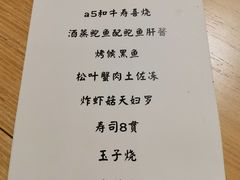 a5和牛寿喜烧
酒蒸鲍鱼配鲍鱼肝酱
烤候黑鱼
松叶蟹肉土佐冻
炸虾菇天妇罗
寿司8贯
玉子烧